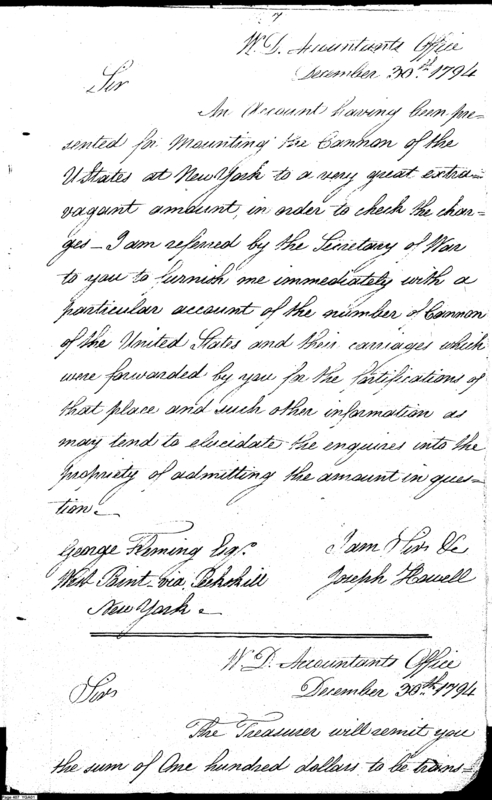 7
W. D. Accountants Office
December 30th 1794
Sir
An Account having been pre=
sented for Mounting the Cannon of the
UStates at New York to a very great extra=
vagant amount, in order to check the char=
ges – I am referred by the Secretary of War
to you to furnish me immediately with a
particular account of the number of Cannon
of the United States and their carriages which
were forwarded by you for the fortifications of
that place and such other information as
may tend to elucidate the enquires into the
propriety of admitting the amount in ques=
tion.–
George Fleming Esq.r I am Sir &c
West Point via Peekskill Joseph Howell
New York.–
W. D. Accountants Office
December 30th 1794
Sir
The Treasurer will remit you
the sum of One hundred dollars to be trans=